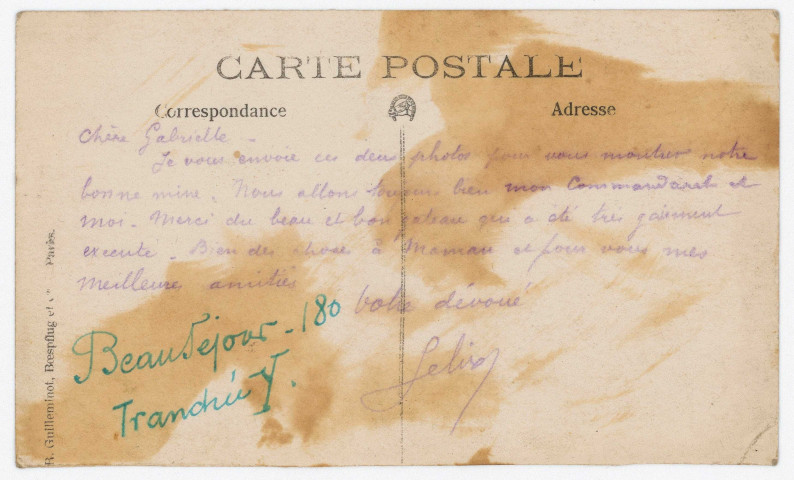 CARTE POSTALE
Correspondance
Adresse
Chère Gabrielle -
Je vous envoie ces deux photos pour vous montrer notre
bonne mine. Nous allons toujours bien mon Commandant et
moi. Merci du beau et bon gateau qui a été très gaiement
executé. Bien des chose à Maman et pour vous mes
meilleures amitiés
Votre dévoué
Felix
Beauséjour - 180
Tranchée Y.
R. Guilleminot, Bœspflug et Cie Paris.